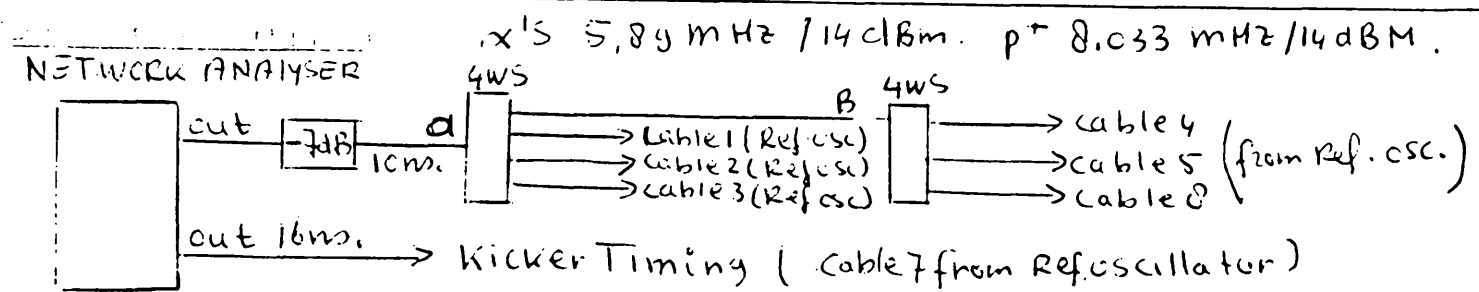 x's 5,89 mHz / 14 dBm. p+ 8.033 mHz / 14 dBM.
NETWORK ANALYSER
4WS
4WS
out
-7dB
a
10ns.
B
cable 1 (Ref. osc)
cable 2 (Ref osc)
cable 3 (Ref osc)
cable 4
cable 5
cable 8
(from Ref. osc.)
out 16ns.
Kicker Timing ( cable 7 from Ref. oscillator)